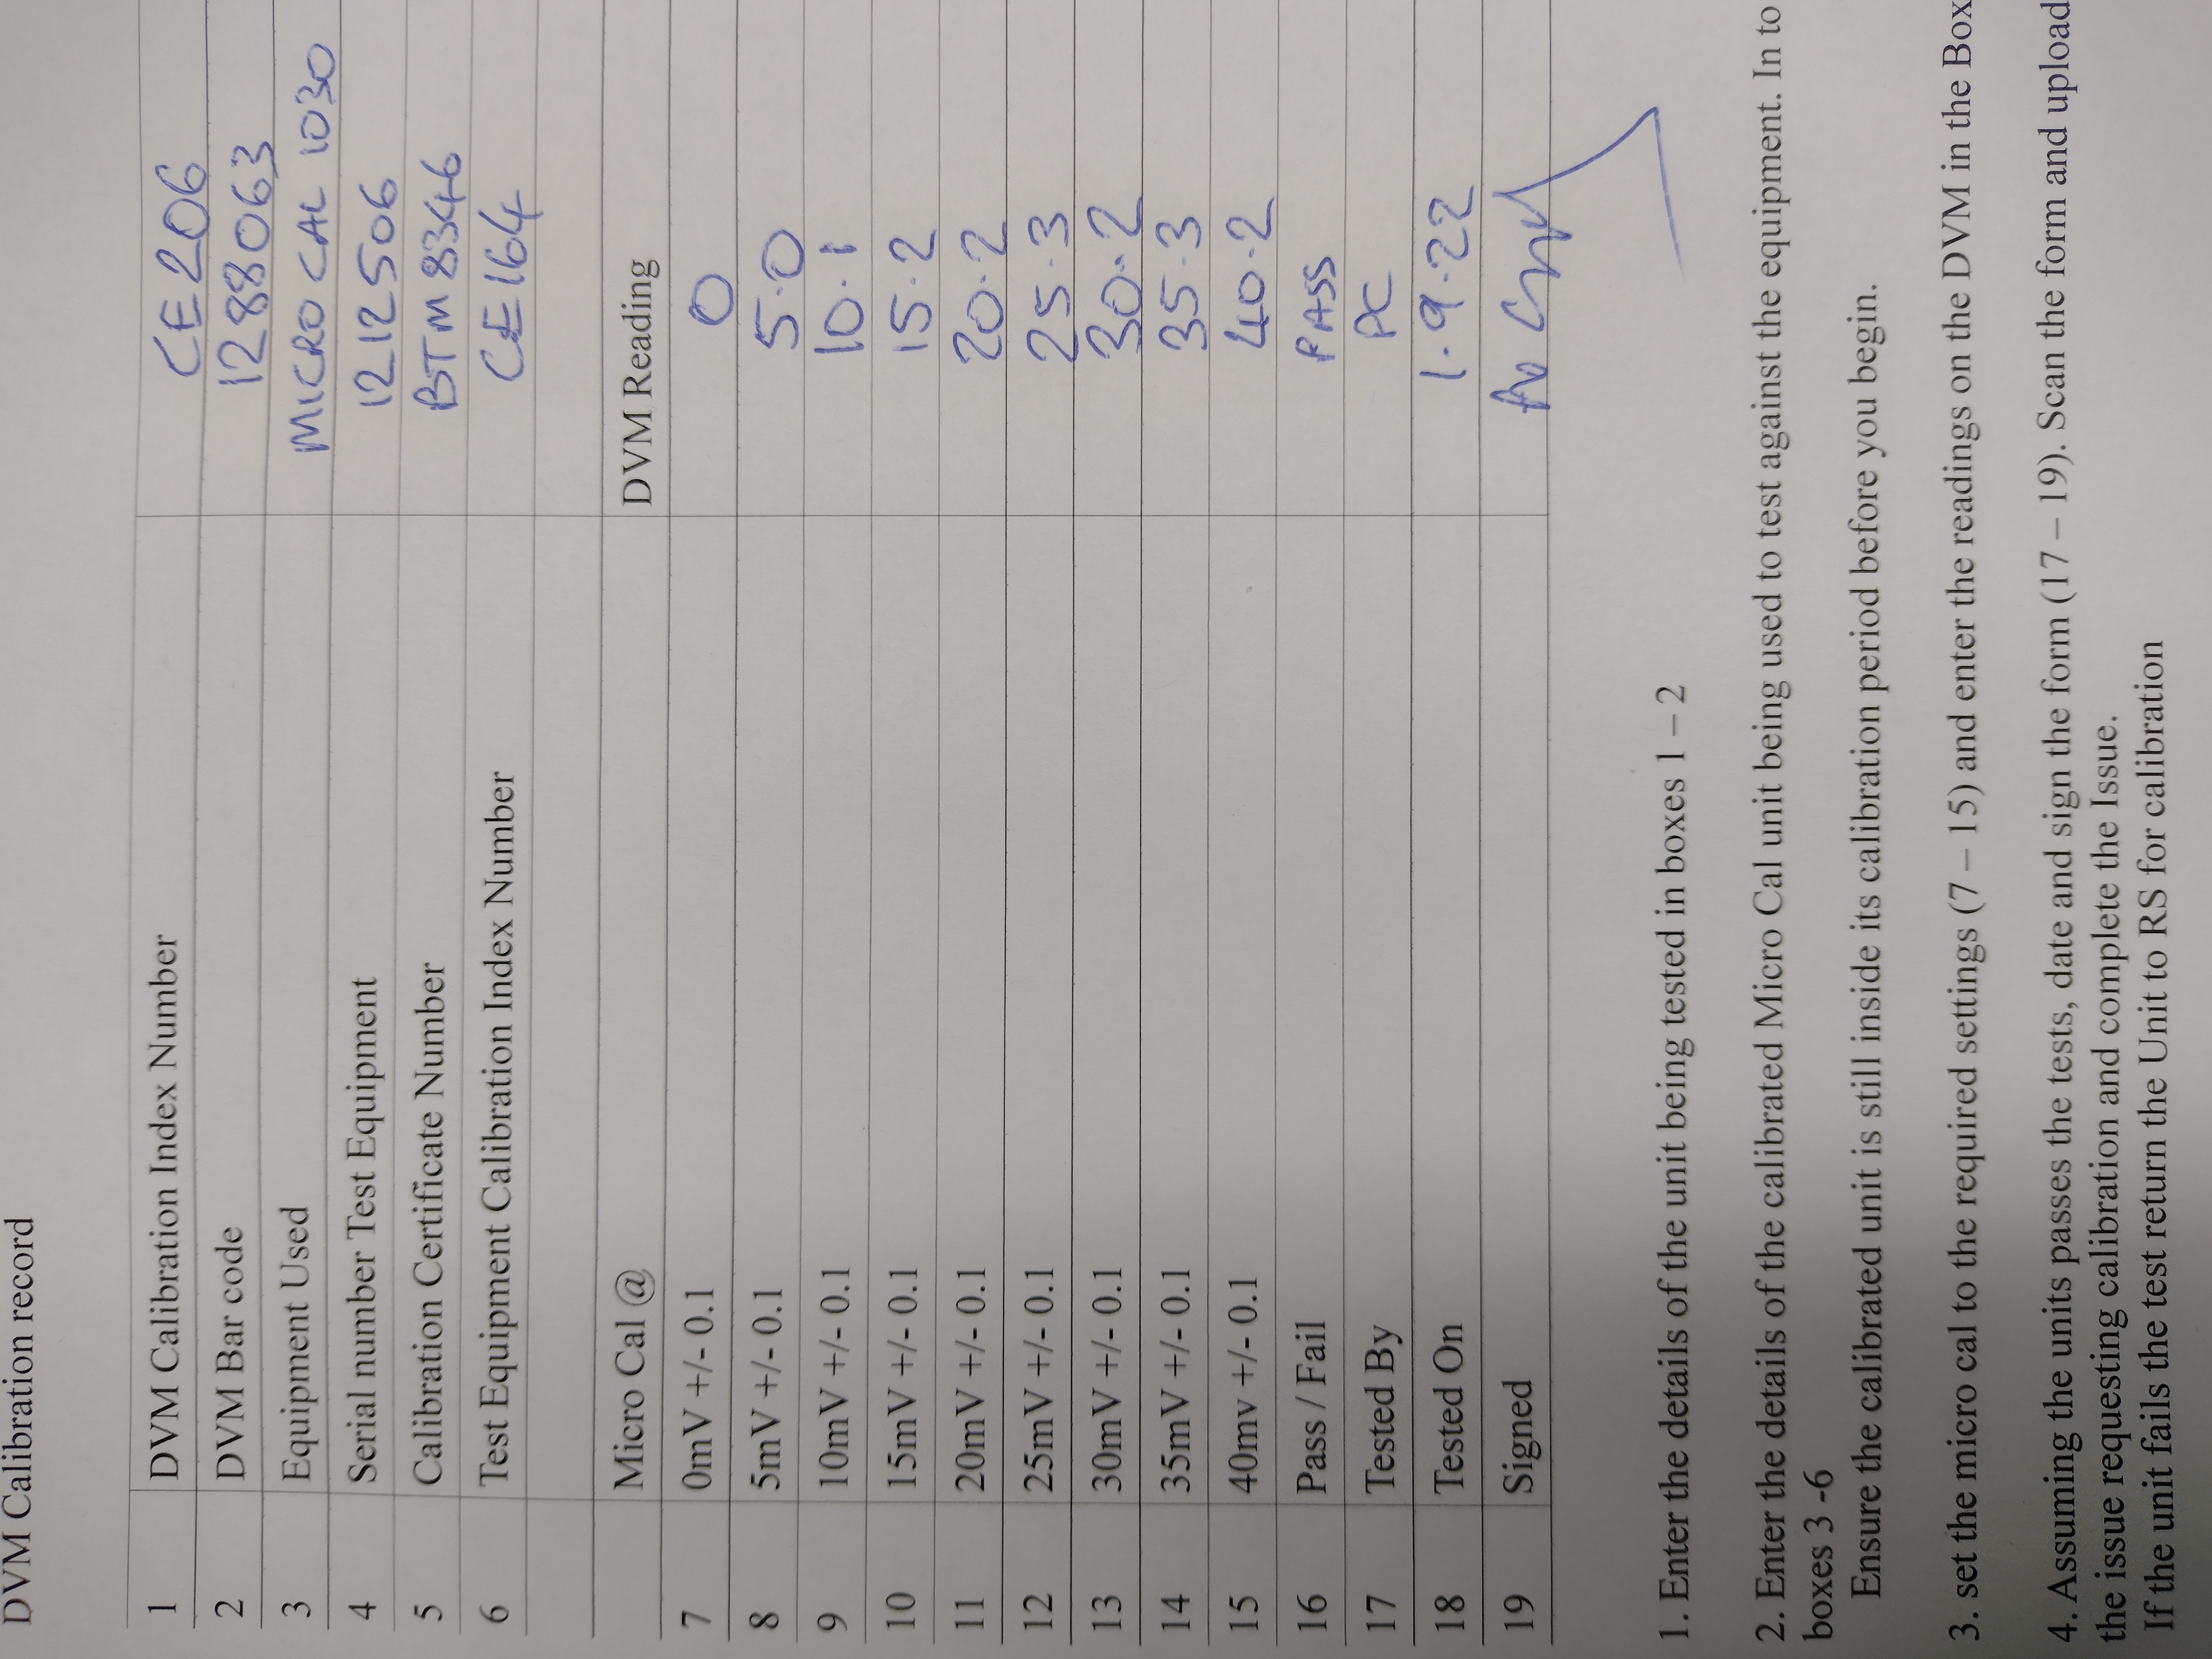 DVM Calibration record
1 DVM Calibration Index Number CE206
2 DVM Bar code 1288063
3 Equipment Used MICRO CAL 1030
4 Serial number Test Equipment 1212506
5 Calibration Certificate Number BTM8346
6 Test Equipment Calibration Index Number CE164
Micro Cal @ DVM Reading
7 0mV +/- 0.1 0
8 5mV +/- 0.1 5.0
9 10mV +/- 0.1 10.1
10 15mV +/- 0.1 15.2
11 20mV +/- 0.1 20.2
12 25mV +/- 0.1 25.3
13 30mV +/- 0.1 30.2
14 35mV +/- 0.1 35.3
15 40mv +/- 0.1 40.2
16 Pass / Fail PASS
17 Tested By PC
18 Tested On 1.9.22
19 Signed
1. Enter the details of the unit being tested in boxes 1 – 2
2. Enter the details of the calibrated Micro Cal unit being used to test against the equipment. In to
boxes 3 -6
Ensure the calibrated unit is still inside its calibration period before you begin.
3. set the micro cal to the required settings (7 – 15) and enter the readings on the DVM in the Box
4. Assuming the units passes the tests, date and sign the form (17 – 19). Scan the form and upload
the issue requesting calibration and complete the Issue.
If the unit fails the test return the Unit to RS for calibration